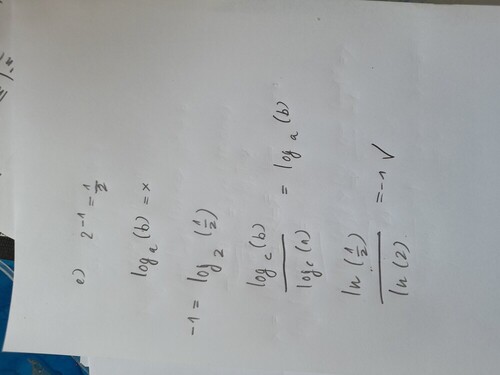 e) 2^-1 = 1/2
log_a (b) = x
-1 = log_2 (1/2)
log_c (b) / log_c (a) = log_a (b)
ln (1/2) / ln (2) = -1 ✓